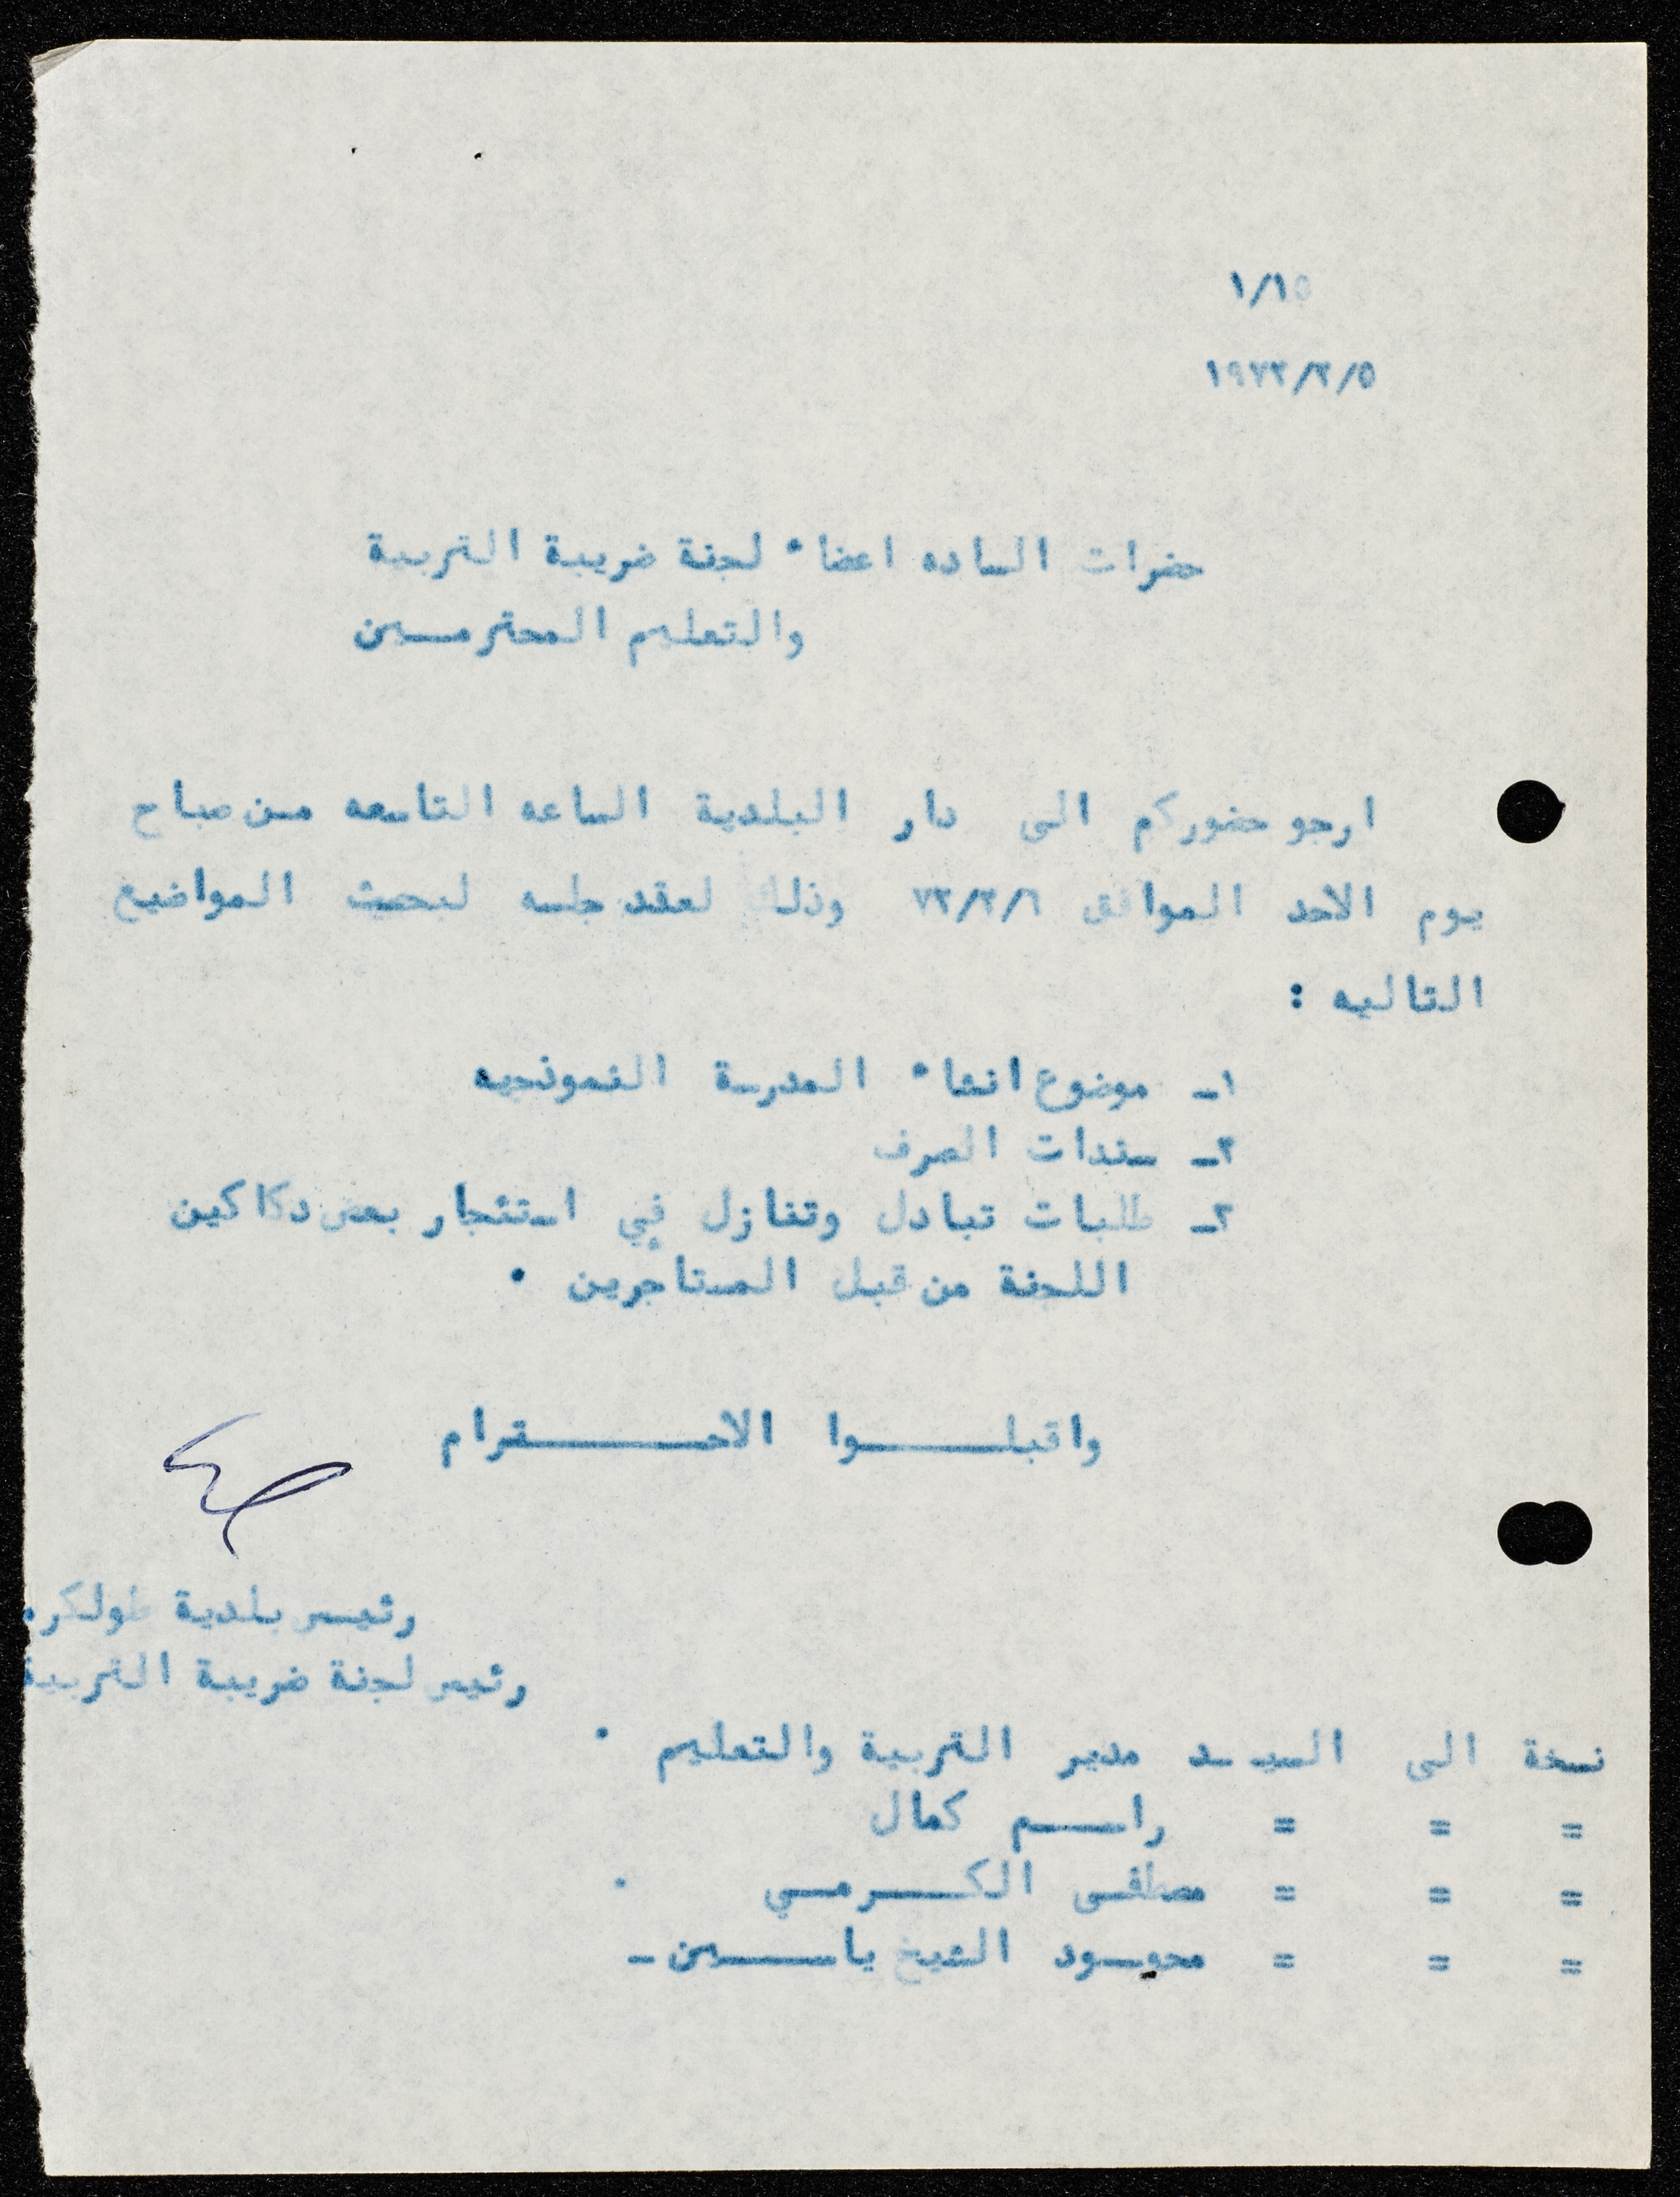 ١/١٥
١٩٧٢/٢/٥
حضرات الساده اعضاء لجنة ضريبة التربية
والتعليم المحترمـــين
ارجو حضوركم الى دار البلدية الساعه التاسعه من صباح
يوم الاحد الموافق ٧٢/٢/٦ وذلك لعقد جلسه لبحث المواضيع
التاليه :
١ـ موضوع انشاء المدرسة النموذجيه
٢ـ سندات الصرف
٣ـ طلبات تبادل وتنازل في استئجار بعض دكاكين
اللجنة من قبل المستاجرين .
واقبلـــــوا الاحـــــــترام
رئيس بلدية طولكرم
رئيس لجنة ضريبة التربية
نسخة الى السيــد مدير التربية والتعليم .
= = = راســـم كمال
= = = مصطفــى الكـــرمــي .
= = = محمــود الشيخ ياســـــين ـ